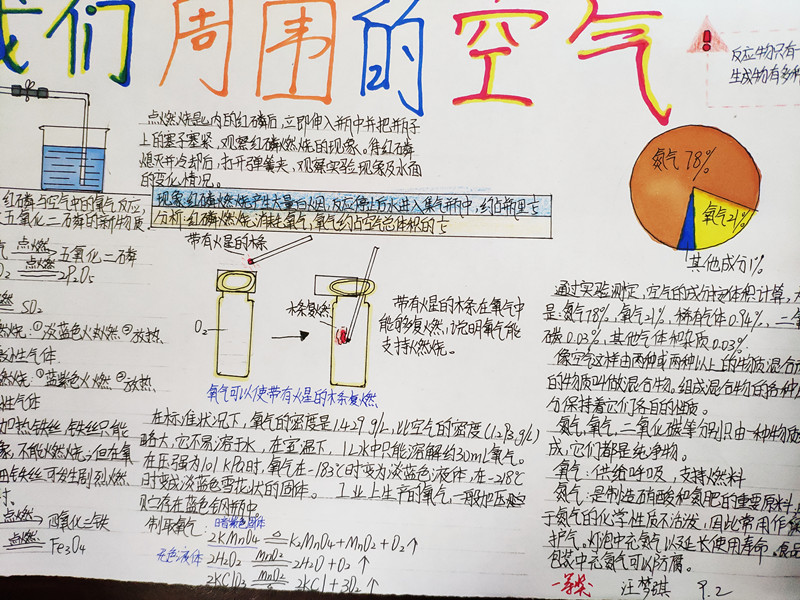 我们周围的空气
反应物只有一
生成物有多种
点燃燃烧匙内的红磷后,立即伸入瓶中并把瓶子
上的塞子塞紧,观察红磷燃烧的现象。待红磷
熄灭并冷却后,打开弹簧夹,观察实验现象及水面
的变化情况。
现象:红磷燃烧,产生大量白烟,反应停止后水进入集气瓶中,约占瓶里1/5
分析:红磷燃烧,消耗氧气,氧气约占空气总体积的1/5
红磷与空气中的氧气反应,
五氧化二磷的新物质。
气 点燃 五氧化二磷
O₂ 点燃 2P₂O₅
燃 SO₂
燃烧:①淡蓝色火焰 ②放热
激性气体
燃烧:①蓝紫色火焰 ②放热
性气体
加热铁丝,铁丝只能
象,不能燃烧。但在氧
细铁丝可发生剧烈燃
点燃 四氧化三铁
点燃 Fe₃O₄
带有火星的木条
O₂
木条复燃
带有火星的木条在氧气中
能够复燃,说明氧气能
支持燃烧。
氧气可以使带有火星的木条复燃
在标准状况下,氧气的密度是1.429g/L,比空气的密度(1.293g/L)
略大。它不易溶于水,在室温下,1L水中只能溶解约30mL氧气。
在压强为101kPa时,氧气在-183℃时变为淡蓝色液体,在-218℃
时变成淡蓝色雪花状的固体。工业上生产的氧气,一般加压贮
存在蓝色钢瓶中
制取氧气:暗紫色固体
2KMnO₄ △ K₂MnO₄+MnO₂+O₂↑
无色液体 2H₂O₂ MnO₂ 2H₂O+O₂↑
2KClO₃ MnO₂ △ 2KCl+3O₂↑
氮气78%
氧气21%
其他成分1%
通过实验测定,空气的成分按体积计算,大
是:氮气78%、氧气21%、稀有气体0.94%、二氧
碳0.03%、其他气体和杂质0.03%。
像空气这样由两种或两种以上的物质混合而
的物质叫做混合物。组成混合物的各种成
分保持着它们各自的性质。
氮气、氧气、二氧化碳等分别只由一种物质
成,它们都是纯净物。
氧气:供给呼吸,支持燃料
氮气:是制造硝酸和氮肥的重要原料,
于氮气的化学性质不活泼,因此常用作保
护气。灯泡中充氮气以延长使用寿命,食品
包装中充氮气可以防腐。
一等奖 汪梦琪 9.2